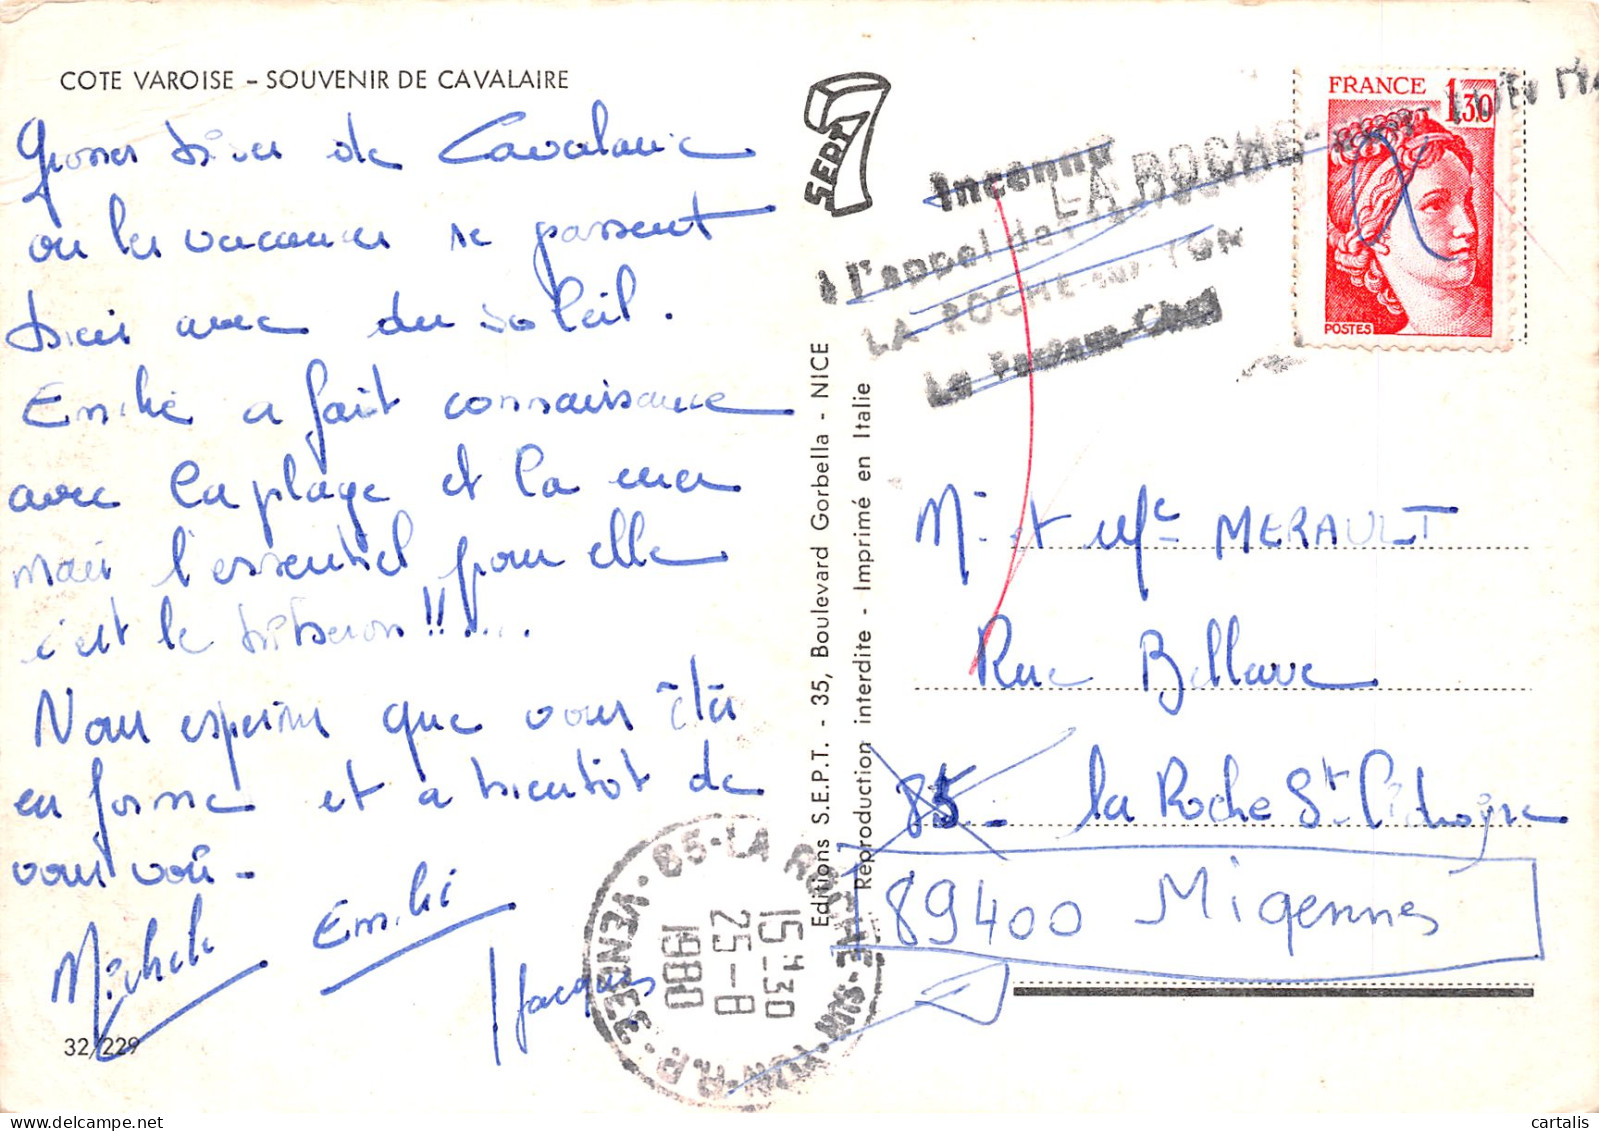 COTE VAROISE - SOUVENIR DE CAVALAIRE
Grosses bises de Cavalaire
ou les vacances se passent
bien avec du soleil.
Emilie a fait connaissance
avec la plage et la mer
mais l'essentiel pour elle
c'est le biberon !!....
Nous espérons que vous êtes
en forme et a bientôt de
vous voir -
Michele Emilie
Jacques
32/229
SEPT 7
Editions S.E.P.T. - 35, Boulevard Gorbella - NICE
Reproduction interdite - Imprimé en Italie
FRANCE 1,30
POSTES
LA ROCHE-sur-YON
Inconnu
à l'appel de
LA ROCHE-sur-YON
Le Facteur-Chef
Mr et Me MERAULT
Rue Bellevue
85 - la Roche St Cidroine
89400 Migennes
85-LA ROCHE-SUR-YON-R.P.
VENDEE
15H30
25-8
1980
cartalis